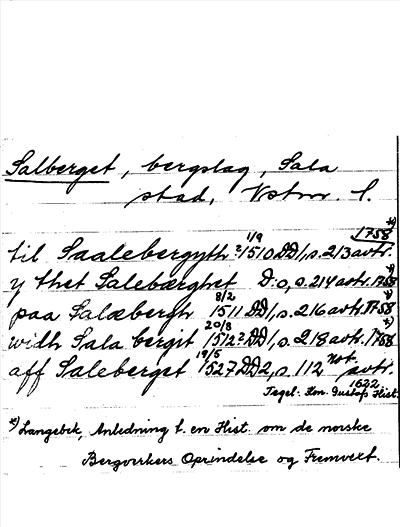 Salberget, bergslag, Sala
stad, Vstm. l.
1758 *)
til Saalebergyth 1/9 ?1510 DD1, s. 213 avtr.
y thet Salebærghet D:o, s. 214 avtr. 1758 *)
paa Salæbergh 8/2 1511 DD1, s. 216 avtr. 1758 *)
widh Sala bergit 20/8 1512? DD1, s. 218 avtr. 1758 *)
aff Saleberget 19/5 1527 DD2, s. 112 not. avtr.
1622
Tegel: Kon. Gustafs Hist.
*) Langebek, Anledning t. en Hist. om de norske
Bergverkers Oprindelse og Fremvext.